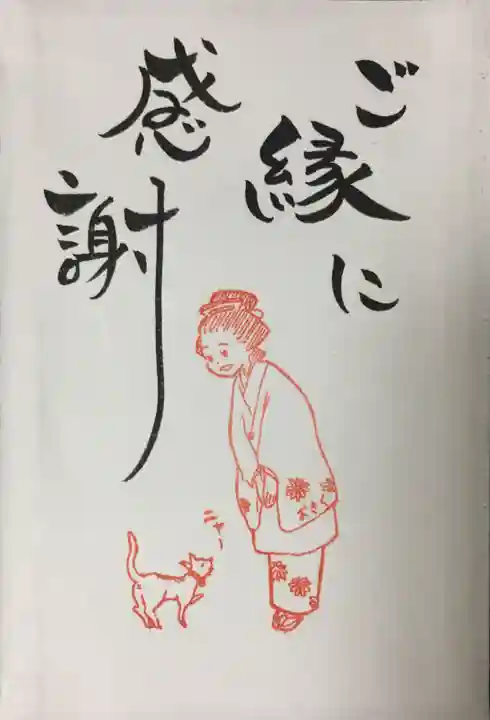 ご縁に
感謝
ニャー